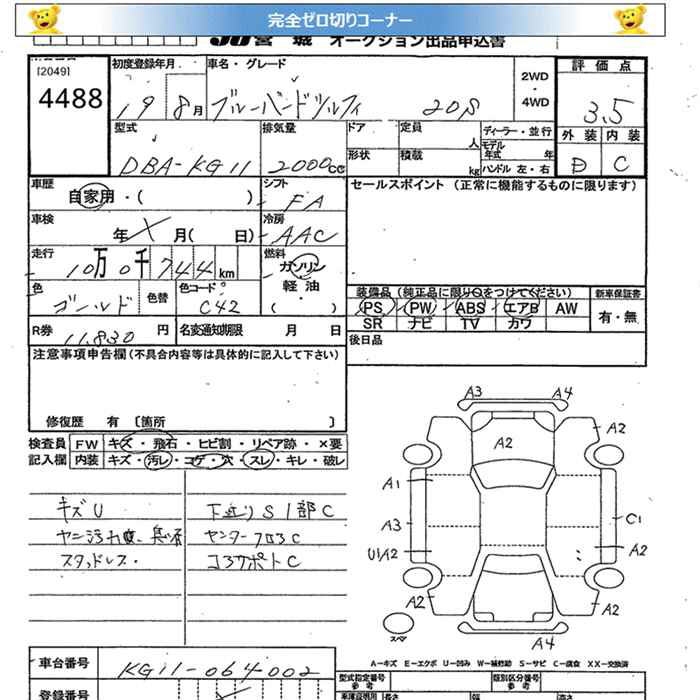 完全ゼロ切りコーナー
JU 宮 城 オークション出品申込書
[2049]
4488
初度登録年月
車名・グレード
2WD
・
4WD
評 価 点
19 8月
ブルーバードシルフィ 20S
3.5
外 装 内 装
D C
型式
排気量
ドア
定員
人
ディーラー・並行
モデル年式 年
形状
積載
kg
ハンドル 左・右
DBA-KG11
2000cc
車歴
自家用・( )
シフト
FA
セールスポイント (正常に機能するものに限ります)
車検
年 月( 日)
冷房
AAC
走行
10万0千744km
燃料
ガソリン
軽油・
( )
色
ゴールド
色替
色コード
C42
装備品 (純正品に限り○をつけてください)
新車保証書
PS PW ABS エアB AW
有・無
SR ナビ TV カワ
R券
11.830円
名変通知期限 月 日
後日品
注意事項申告欄(不具合内容等は具体的に記入して下さい)
修復歴 有 〔箇所 〕
検査員
記入欄
FW キズ・飛石・ヒビ割・リペア跡・×要
内装 キズ・汚レ・コゲ・穴・スレ・キレ・破レ
キズU
スタッドレス.
下廻りS1部C
センターフロアC
コアサポートC
A3 A4
A2 A2
A1
A3 C1
U1/A2 A2
A2 A2
スペア A4
A－キズ E－エクボ U－凹み W－補修跡 S－サビ C－腐食 XX－交換済
車台番号
KG11-064002
型式指定番号
参考
類別区分番号
参考
登録番号
長さ 幅 高さ